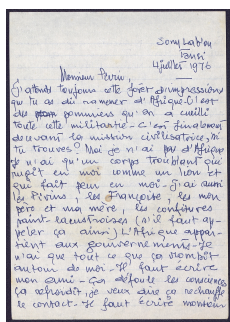 Sony Lab'ou
Tansi
4 juillet 1976
Monsieur
j'attends toujours cette forêt d'impressions
que tu as dû ramener d'Afrique. C'est
des pommiers qu'on a cueilli
toute cette - c'est finalement
décevant la mission civilisatrice, si
tu trouves? Moi je n'ai pas d'Afrique
je n'ai qu'un corps troublant qui
rugit en moi comme un lion et
qui fait peur en moi - j'ai aussi
les les Françoise, les mon
père et ma mère, les confitures
(s'il faut ap-
peler ça ainsi) L'Afrique appar-
tient aux gouvernements - Je
n'ai que tout ce que ça
autour de moi - Il faut écrire
mon ami - ça défoule les consciences
ça refroidit, je veux dire ça réchauffe
le contact - Il faut écrire monsieur